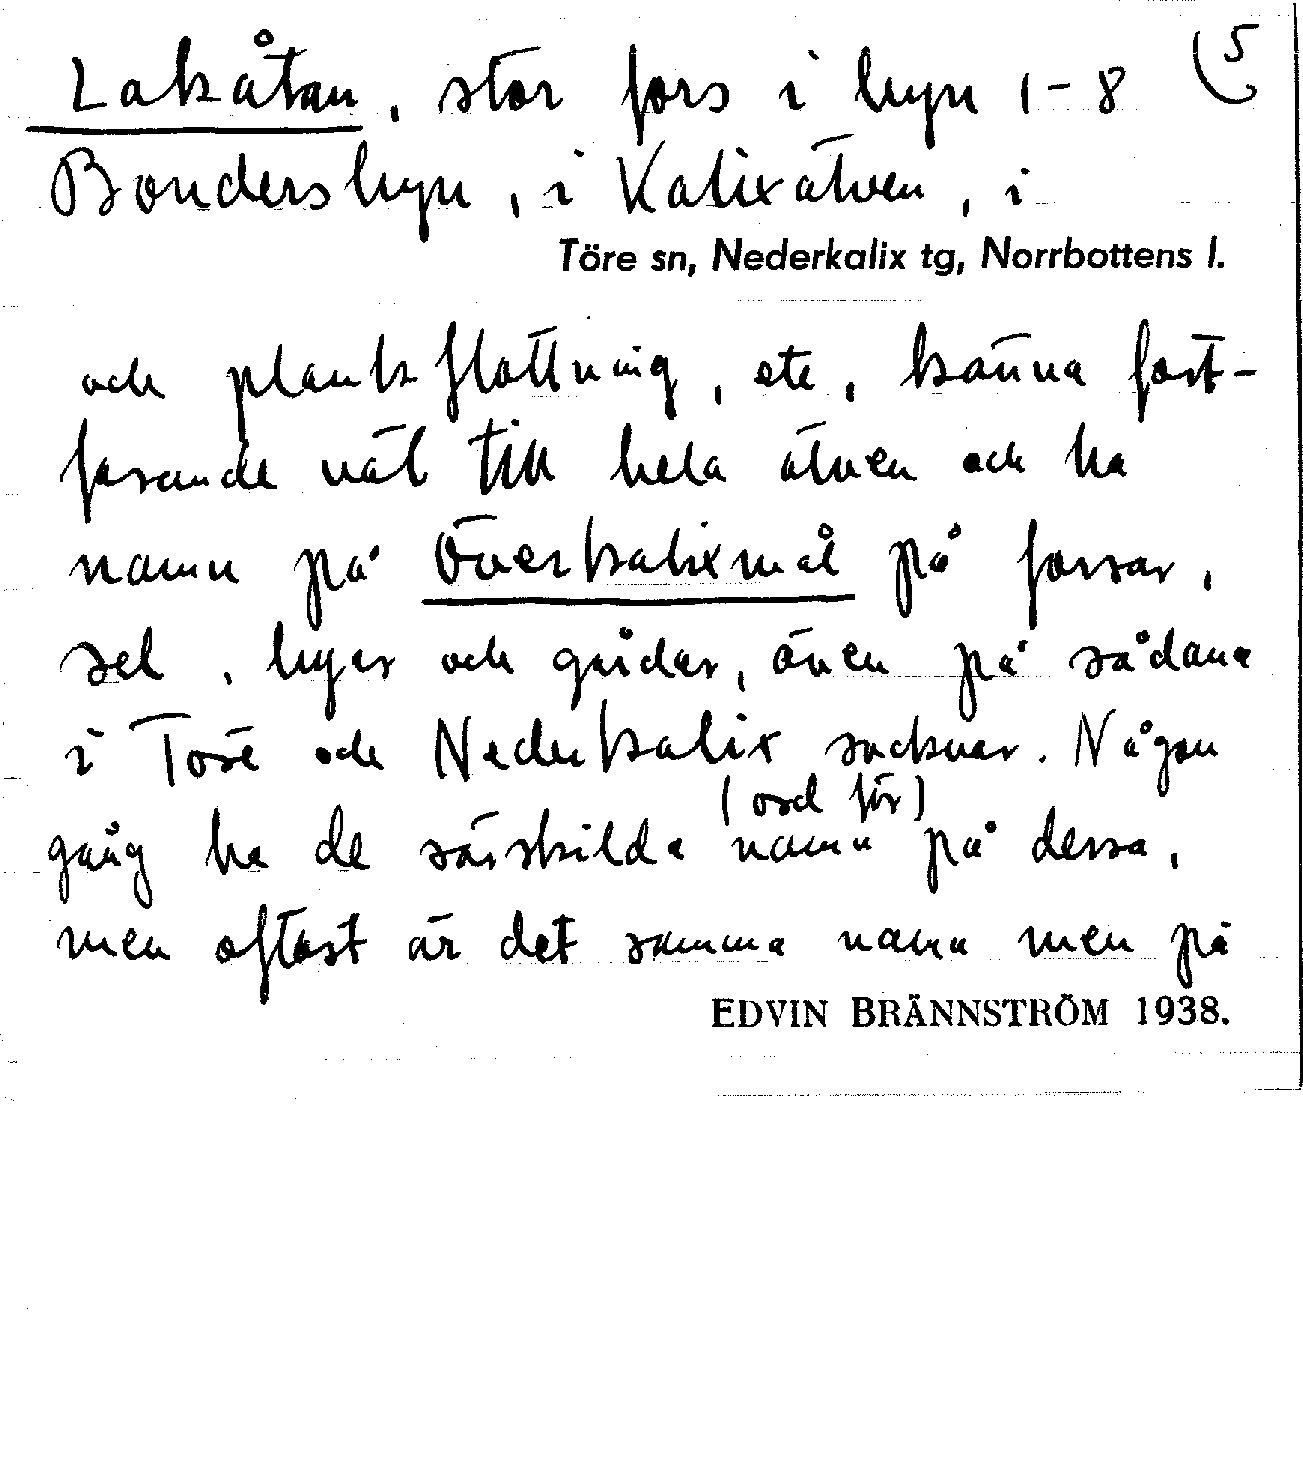 Lakåtan, stor fors i hyn 1-8 5
Bondershyn, i Kalixälven, i
Töre sn, Nederkalix tg, Norrbottens l.
och plankflottning, etc, känna fort-
farande väl till hela älven och ha
namn på Överkalixmål på forsar,
sel, hyer och guidar, även på sådana
i Töre och Nederkalix socknar. Någon
(ord för)
gång ha de särskilda namn på dessa,
men oftast är det samma namn men på
EDVIN BRÄNNSTRÖM 1938.